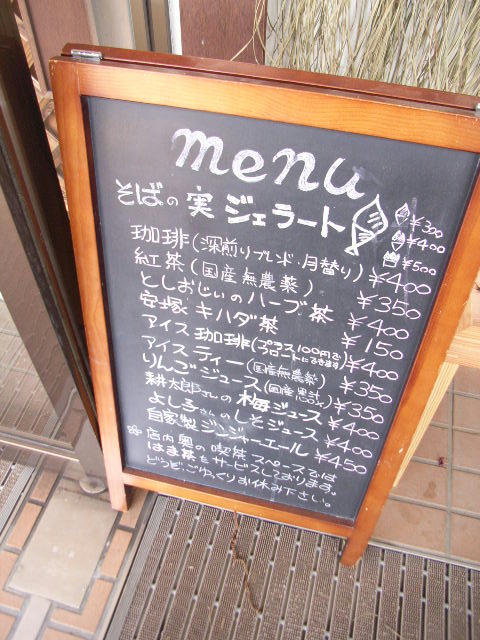 menu
そばの実 ジェラート ¥300
¥400
¥500
珈琲(深煎りブレンド・月替り) ¥400
紅茶(国産無農薬) ¥350
としおじいのハーブ茶 ¥400
宝塚キハダ茶 ¥150
アイス珈琲(プラス100円でフロートにできます) ¥400
アイスティー(国産無農薬) ¥350
りんごジュース(国産果汁100%) ¥350
耕太郎さんの梅ジュース ¥400
よし子さんのしそジュース ¥400
自家製ジンジャーエール ¥450
店内奥の喫茶スペースでは
はま茶をサービスしております。
どうぞごゆっくりお休み下さい。